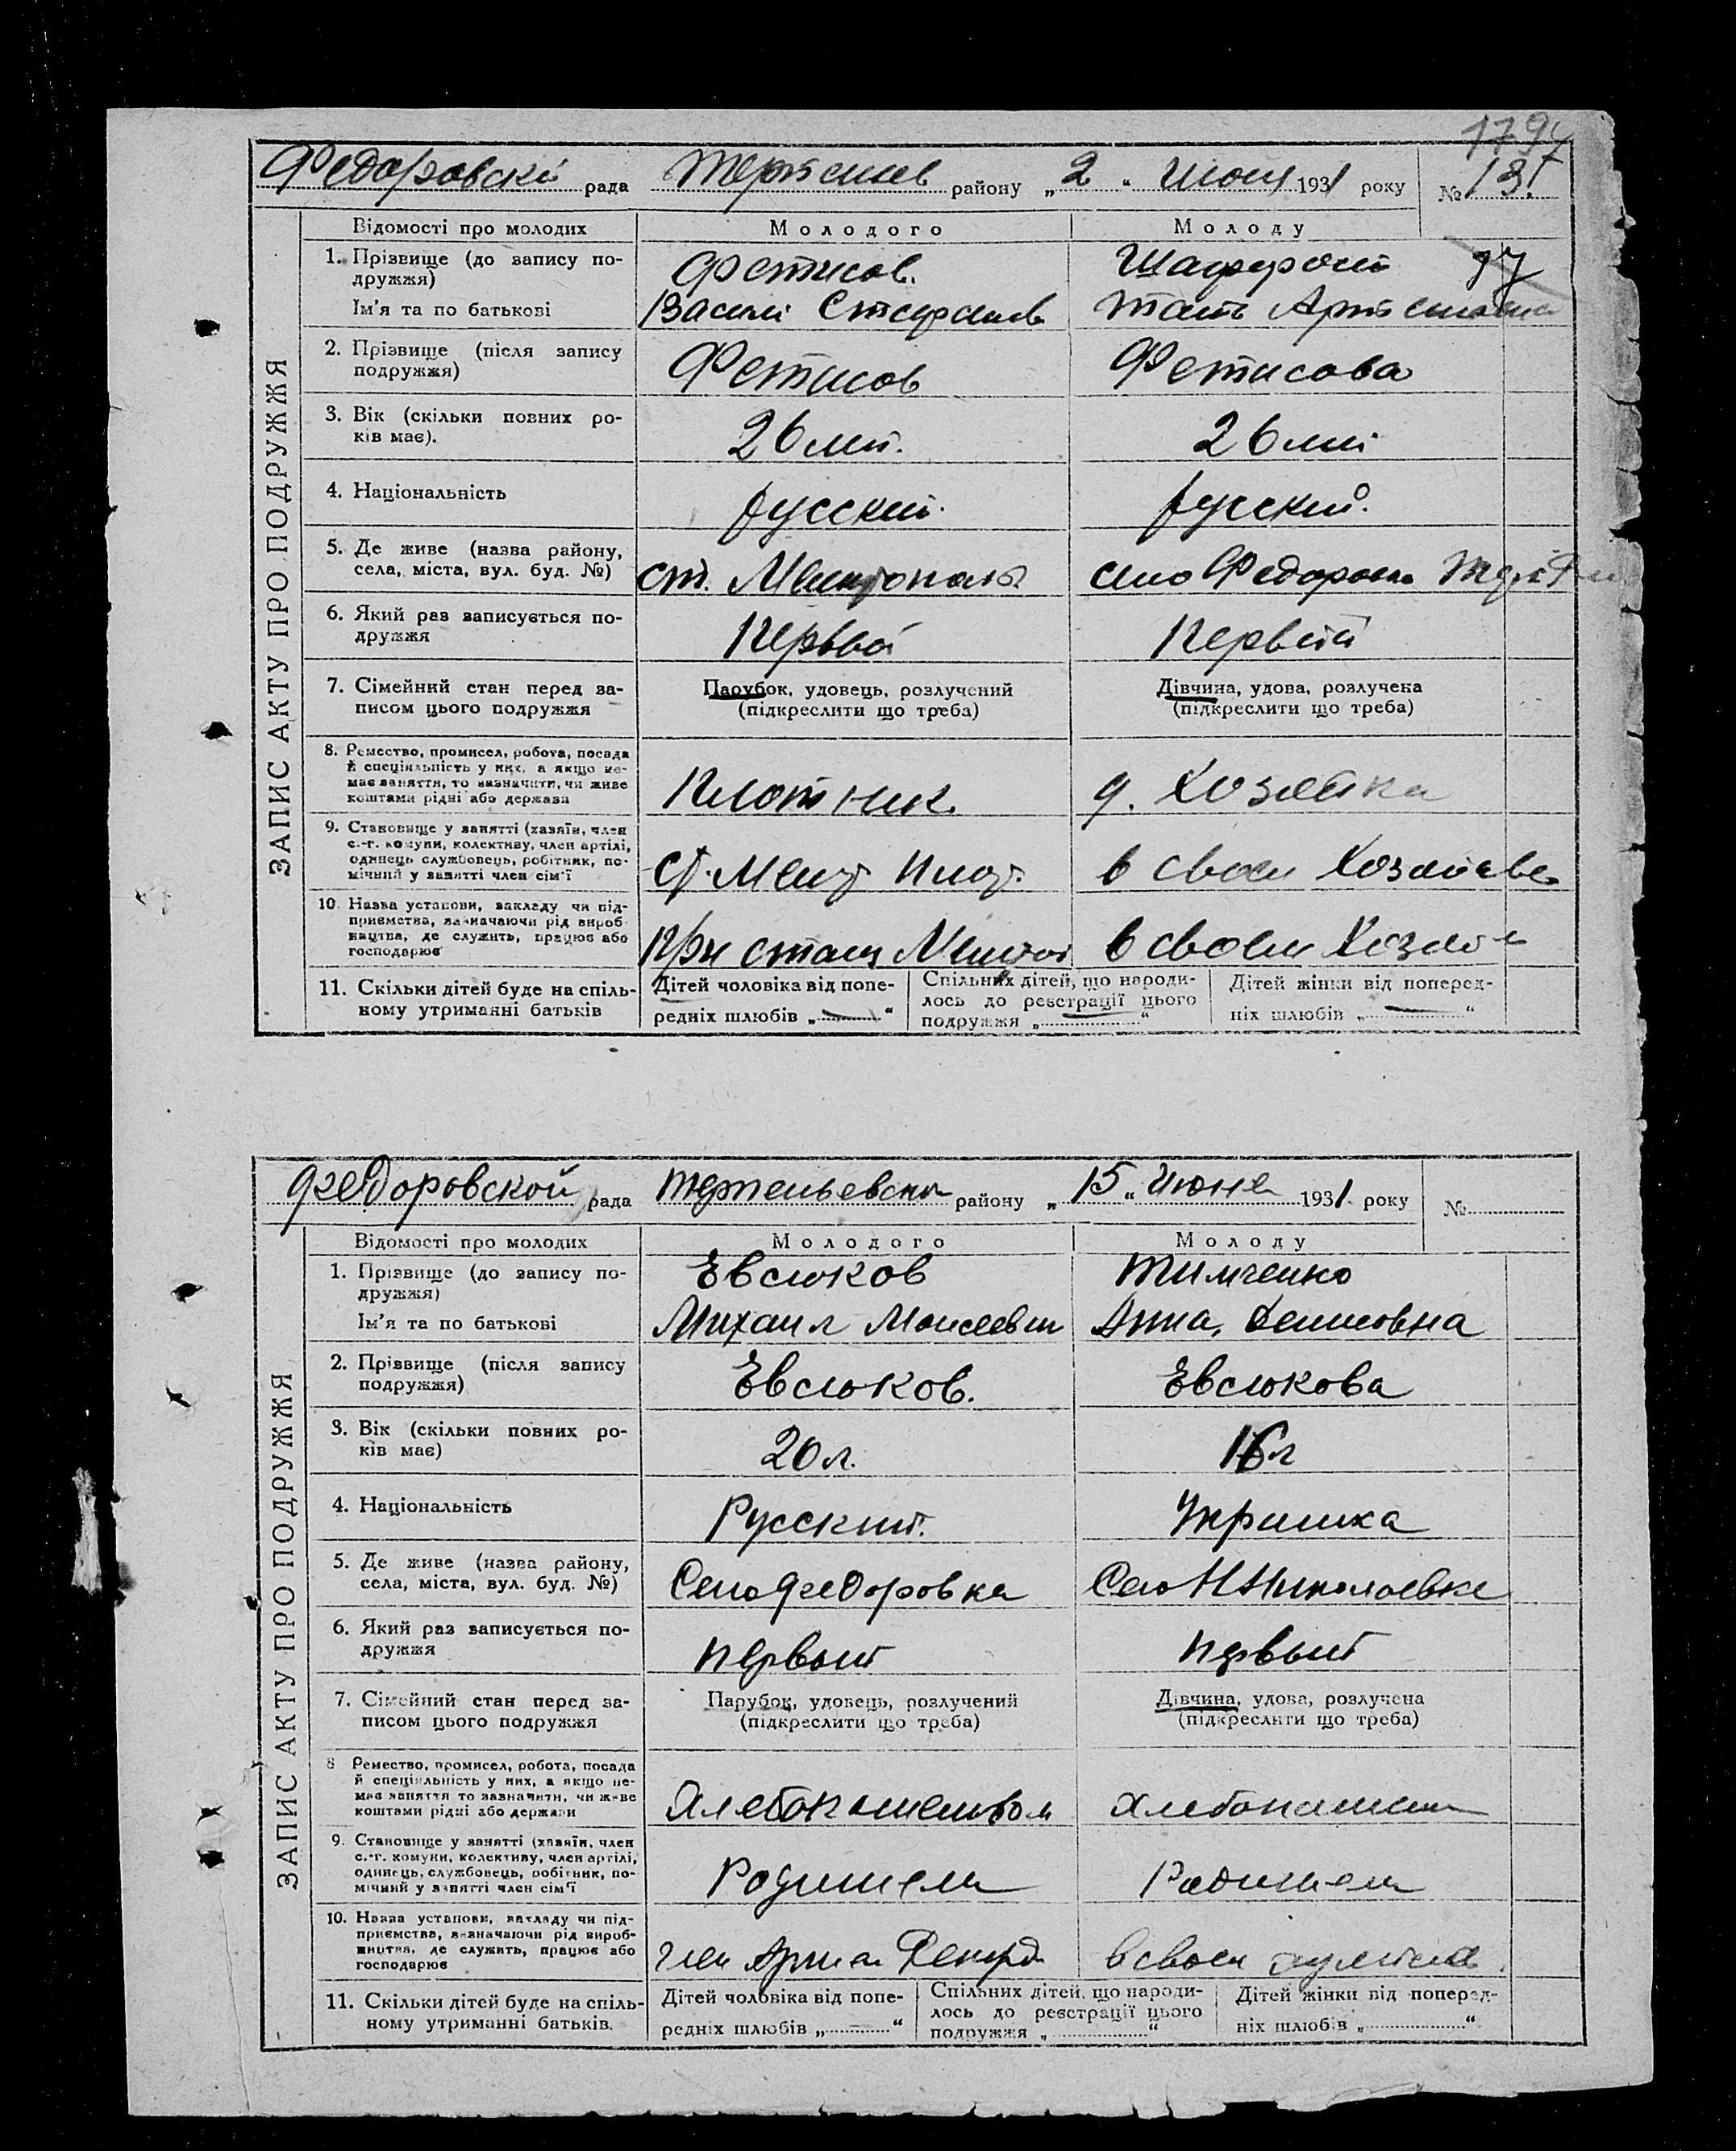 179
Федоровскі рада район у „2“ июня 1931 року № 13
ЗАПИС АКТУ ПРО ПОДРУЖЖЯ
Відомості про молодих Молодого Молоду
1. Прізвище (до запису по- Фетисов.
дружжя)
Ім'я та по батькові Василі
2. Прізвище (після запису Фетисов Фетисова
подружжя)
3. Вік (скільки повних ро- 26 лет. 26 лет
ків має).
4. Національність русский. русский.
5. Де живе (назва району, ст. Мелитополь село Федоровка
села, міста, вул. буд. №)
6. Який раз записується по- Первый Первый
дружжя
7. Сімейний стан перед за- Парубок, удовець, розлучений Дівчина, удова, розлучена
писом цього подружжя (підкреслити що треба) (підкреслити що треба)
8. Ремество, промисел, робота, посада
й спеціяльність у них, а якщо не-
має заняття, то зазначити, чи живе Плотник д. Хозяйка
коштами рідні або держави
9. Становище у занятті (хазяїн, член
с.-г. комуни, колективу, член артілі,
одинець службовець, робітник, по- в своем
мічний у занятті член сім'ї
10. Назва установи, закладу чи під-
приємства, зазначаючи рід вироб-
ництва, де служить, працює або При в своем
господарює
11. Скільки дітей буде на спіль- Дітей чоловіка від попе- Спільних дітей, що народи- Дітей жінки від поперед-
ному утриманні батьків редніх шлюбів „—“ лось до реєстрації цього ніх шлюбів „—“
подружжя „—“
Федоровской рада району „15“ июня 1931 року №
ЗАПИС АКТУ ПРО ПОДРУЖЖЯ
Відомості про молодих Молодого Молоду
1. Прізвище (до запису по- Евсюков Тимченко
дружжя)
Ім'я та по батькові Михаил Моисеевич Анна Денисовна
2. Прізвище (після запису Евсюков. Евсюкова
подружжя)
3. Вік (скільки повних ро- 20 л.
ків має)
4. Національність Русский.
5. Де живе (назва району, Село Федоровка Село
села, міста, вул. буд. №)
6. Який раз записується по- первый первый
дружжя
7. Сімейний стан перед за- Парубок, удовець, розлучений Дівчина, удова, розлучена
писом цього подружжя (підкреслити що треба) (підкреслити що треба)
8 Ремество, промисел, робота, посада
й спеціяльність у них, а якщо не-
має заняття то зазначити, чи живе
коштами рідні або держави
9. Становище у занятті (хазяїн, член
с.-г. комуни, колективу, член артілі,
одинець, службовець, робітник, по-
мічний у занятті член сім'ї
10. Назва установи, закладу чи під-
приємства, зазначаючи рід вироб-
ництва, де служить, працює або член в своем
господарює
11. Скільки дітей буде на спіль- Дітей чоловіка від попе- Спільних дітей, що народи- Дітей жінки від поперед-
ному утриманні батьків. редніх шлюбів „“ лось до реєстрації цього ніх шлюбів „“
подружжя „“